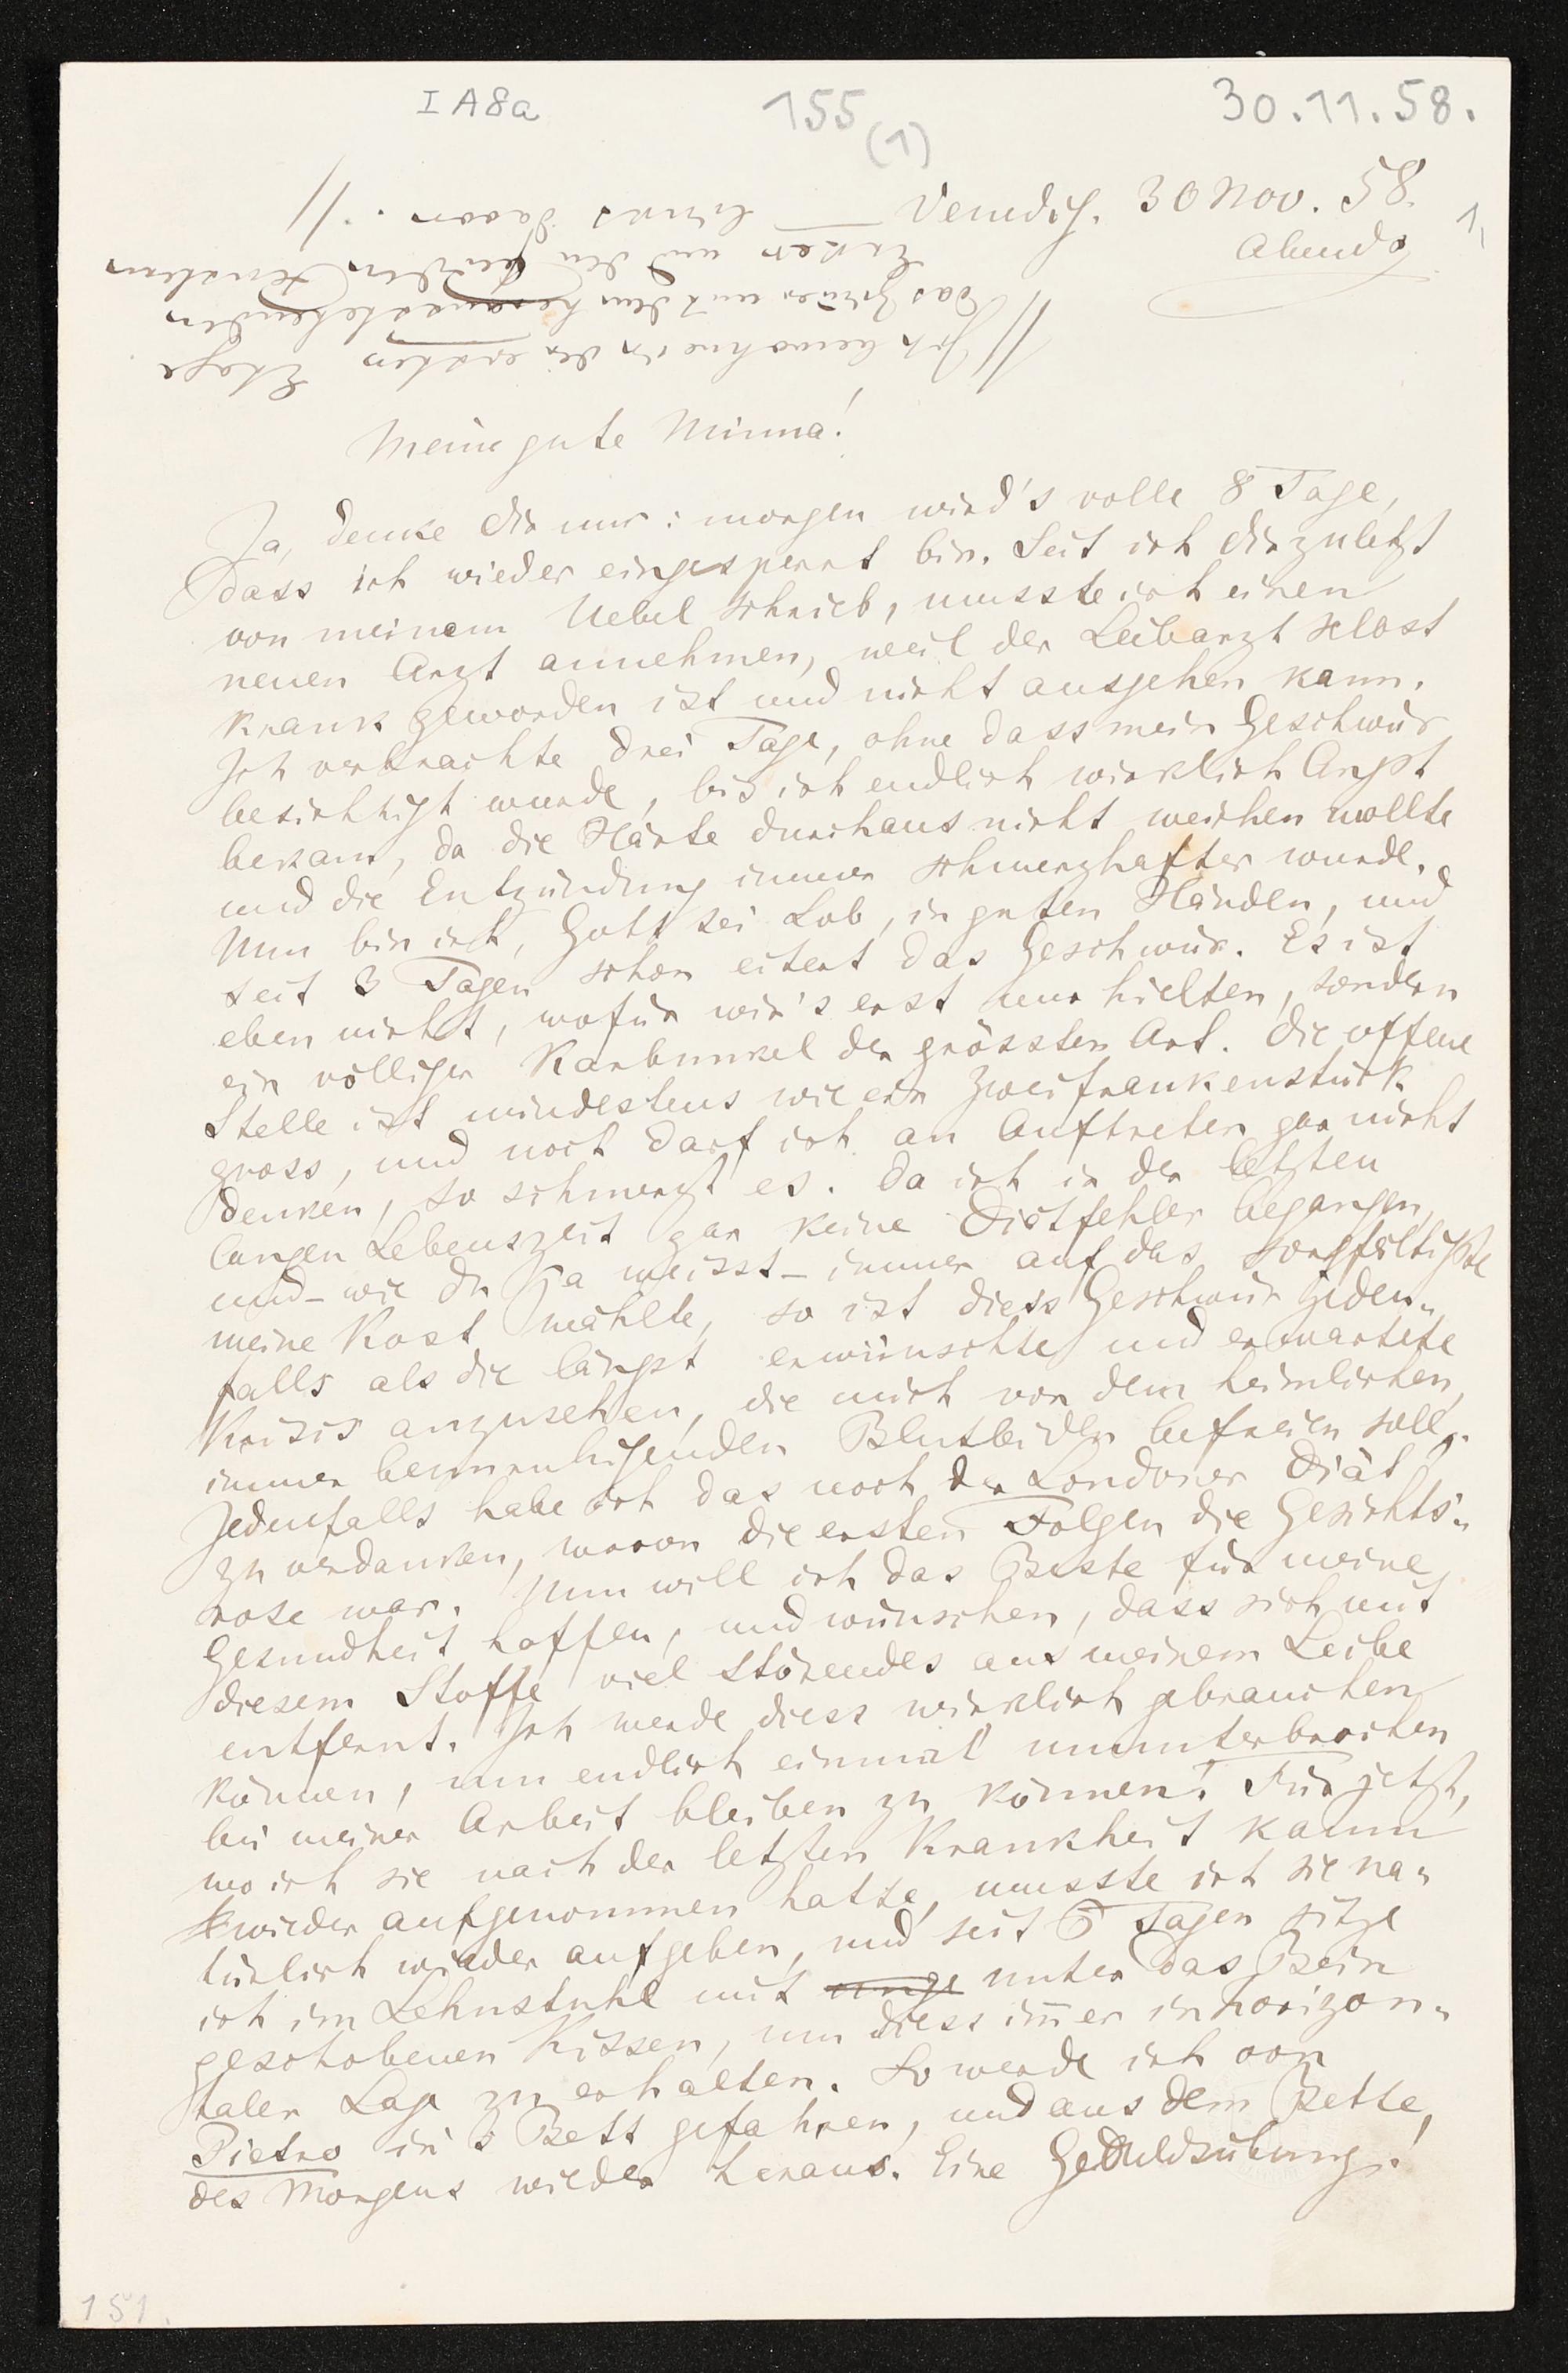 I A8a
155
(1)
30.11.58.
Venedig. 30 Nov. 58.
1,
Abends
// Ich bewohne in der ersten Etage
das Zimmer mit dem herausstehenden
Erker und den beiden Fenstern
links davon. //
Meine gute Minna!
Ja, denke Dir nur: morgen wird's volle 8 Tage,
dass ich wieder eingesperrt bin. Seit ich Dir zuletzt
von meinem Uebel schrieb, musste ich einen
neuen Arzt annehmen, weil der Leibarzt selbst
krank geworden ist und nicht ausgehen kann.
Ich verbrachte drei Tage, ohne dass mein Geschwür
besichtigt wurde, bis ich endlich wirklich Angst
bekam, da die Härte durchaus nicht weichen wollte
und die Entzündung immer schmerzhafter wurde.
Nun bin ich, Gott sei Lob, in guten Händen, und
seit 3 Tagen schon eitert das Geschwür. Es ist
eben nicht, wofür wir's erst nur hielten, sondern
ein völliger Karbunkel der grössten Art. Die offene
Stelle ist mindestens wie ein Zweifrankenstück
gross, und noch darf ich an Auftreten gar nicht
denken, so schmerzt es. Da ich in der letzten
langen Lebenszeit gar keine Diätfehler begangen,
und – wie Du ja weisst – immer auf das sorgfältigste
meine Kost wählte, so ist diess Geschwür jeden-
falls als die längst erwünschte und erwartete
Krisis anzusehen, die mich von dem heimlichen,
immer beunruhigenden Blutleiden befreien soll.
Jedenfalls habe ich das noch der Londoner Diät
zu verdanken, wovon die ersten Folgen die Gesichts-
rose war. Nun will ich das Beste für meine
Gesundheit hoffen, und wünschen, dass sich mit
diesem Stoffe viel Störendes aus meinem Leibe
entfernt. Ich werde diess wirklich gebrauchen
können, um endlich einmal ununterbrochen
bei meiner Arbeit bleiben zu können. Für jetzt,
wo ich sie nach der letzten Krankheit kaum
wieder aufgenommen hatte, musste ich sie na-
türlich wieder aufgeben, und seit 6 Tagen sitze
ich im Lehnstuhl mit unter das Bein
geschobenen Kissen, um diess immer in horizon-
taler Lage zu erhalten. So werde ich von
Pietro in's Bett gefahren, und aus dem Bette,
des Morgens wieder heraus. Eine Geduldsübung!
151.